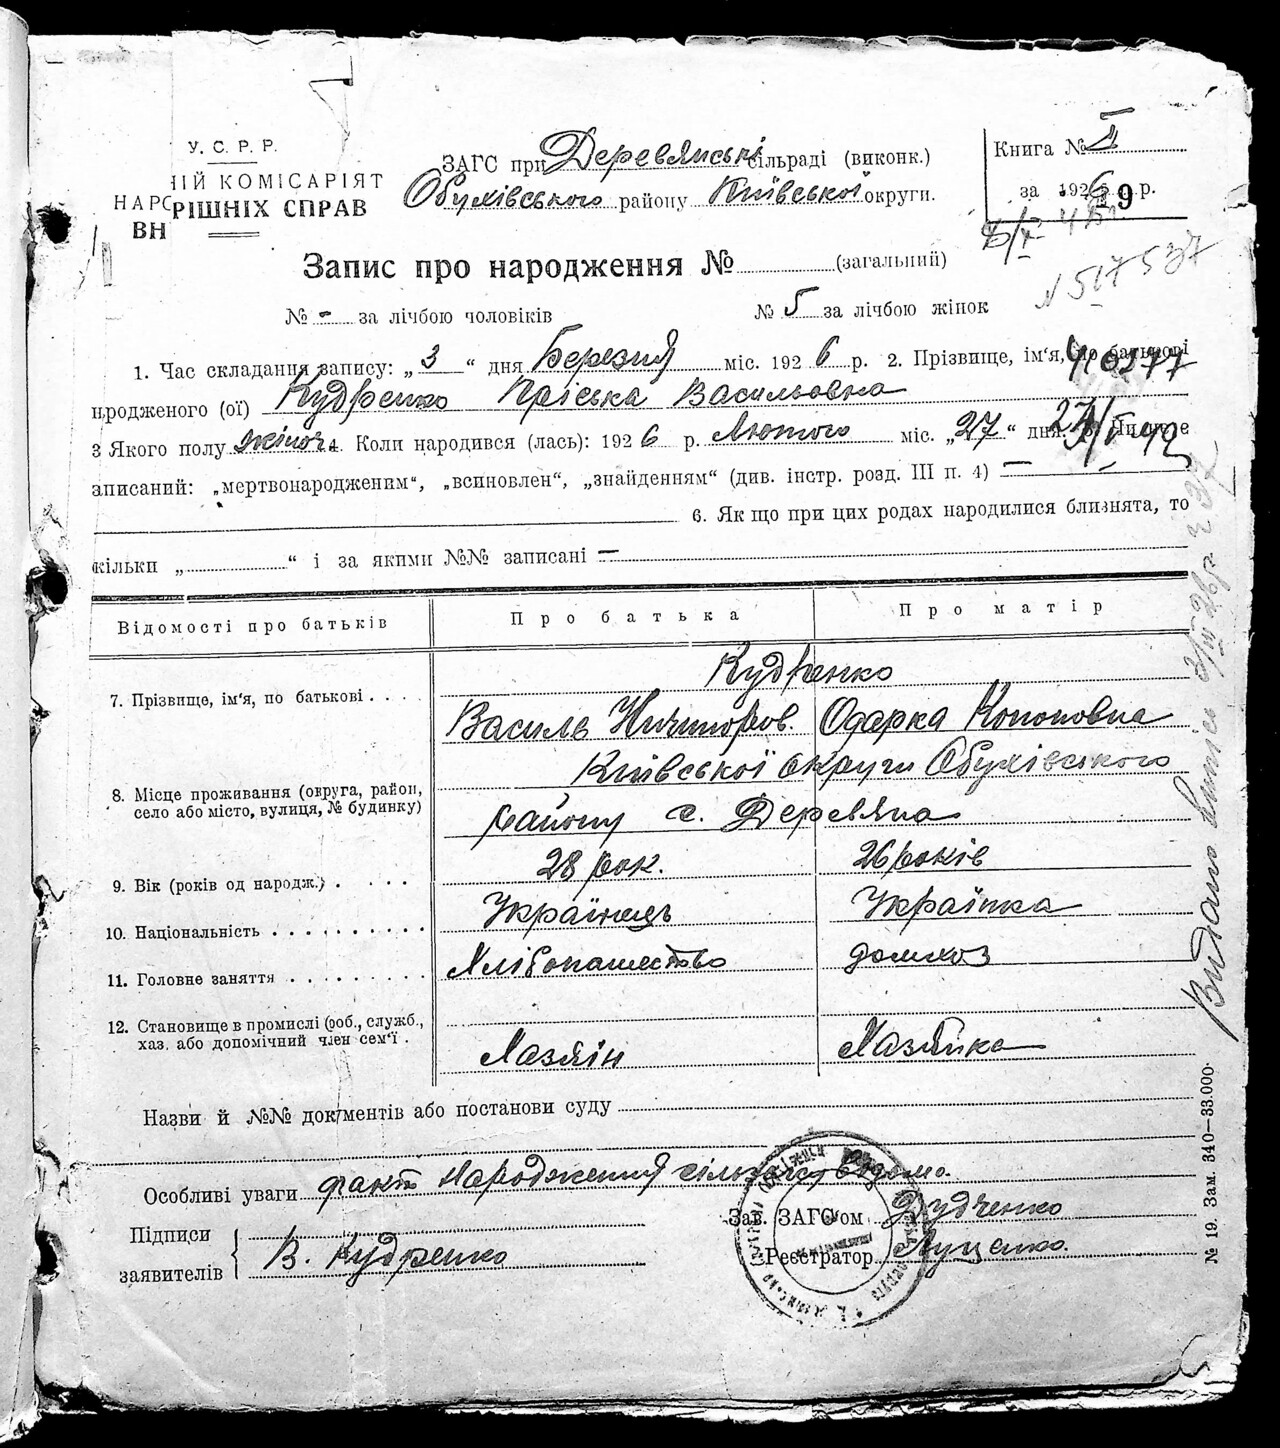 У. С. Р. Р.
НАРС ІЙ КОМІСАРІЯТ
ВН РІШНІХ СПРАВ
ЗАГС при Деревянські сільраді (виконк.)
Обухівського району Київської округи.
Книга № I
за 1926 р.
9
Запис про народження № (загальний)
N 517537
№ - за лічбою чоловіків № 5 за лічбою жінок
1. Час складання запису: „3“ дня Березня міс. 1926 р. 2. Прізвище, ім'я, по батькові
народженого (ої) Кудренко Пріська Васильовна
3 Якого полу жіноч 4. Коли народився (лась): 1926 р. Лютого міс. „27“ дня. 5. Чи не
записаний: „мертвонародженим“, „всиновлен“, „знайденням“ (див. інстр. розд. III п. 4) —
6. Як що при цих родах народилися близнята, то
кільки „ “ і за якими №№ записані —
Відомості про батьків Про батька Про матір
Кудренко
7. Прізвище, ім'я, по батькові . . . . Василь Ничипоров. Одарка Кононовна
Київської округи Обухівського
8. Місце проживання (округа, район,
село або місто, вулиця, № будинку) району с. Деревяна
9. Вік (років од народж.) . . . . 28 рок. 26 років
10. Національність . . . . . . . . . . Українець Українка
11. Головне заняття . . . . . . . . . Хлібопашество домхоз
12. Становище в промислі (роб., служб.,
хаз. або допомічний член сем'ї . Хазяїн Хазяйка
Назви й №№ документів або постанови суду
Особливі уваги факт народження сільраді відомо.
Підписи
заявителів В. Кудренко
Зав. ЗАГС'ом Дудченко
Реєстратор Луценко.
Видано випис
№ 19. Зам. 340—33.000